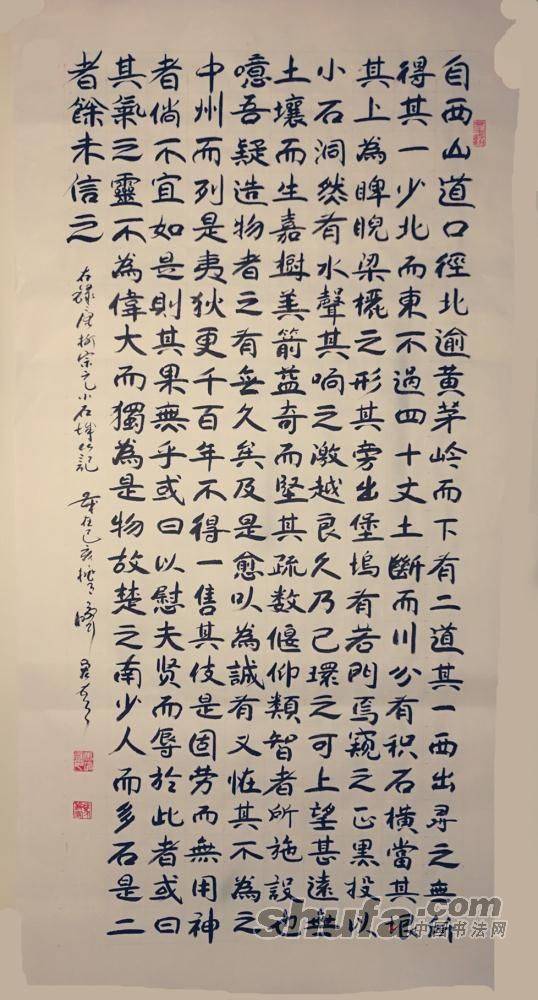 自西山道口徑北逾黄茅岭而下有二道其一西出尋之無所
得其一少北而東不過四十丈土斷而川分有积石橫當其垠
其上為睥睨梁欐之形其旁出堡塢有若門焉窺之正黑投以
小石洞然有水聲其响之激越良久乃已環之可上望甚遠無
土壤而生嘉樹美箭益奇而堅其疏数偃仰類智者所施設也
噫吾疑造物者之有無久矣及是愈以為誠有又怪其不為之
中州而列是夷狄更千百年不得一售其伎是固劳而無用神
者倘不宜如是則其果無乎或曰以慰夫贤而辱於此者或曰
其氣之靈不為偉大而獨為是物故楚之南少人而多石是二
者餘未信之
右録唐柳宗元小石城山記 歲在己亥
shufa.com
中国书法网